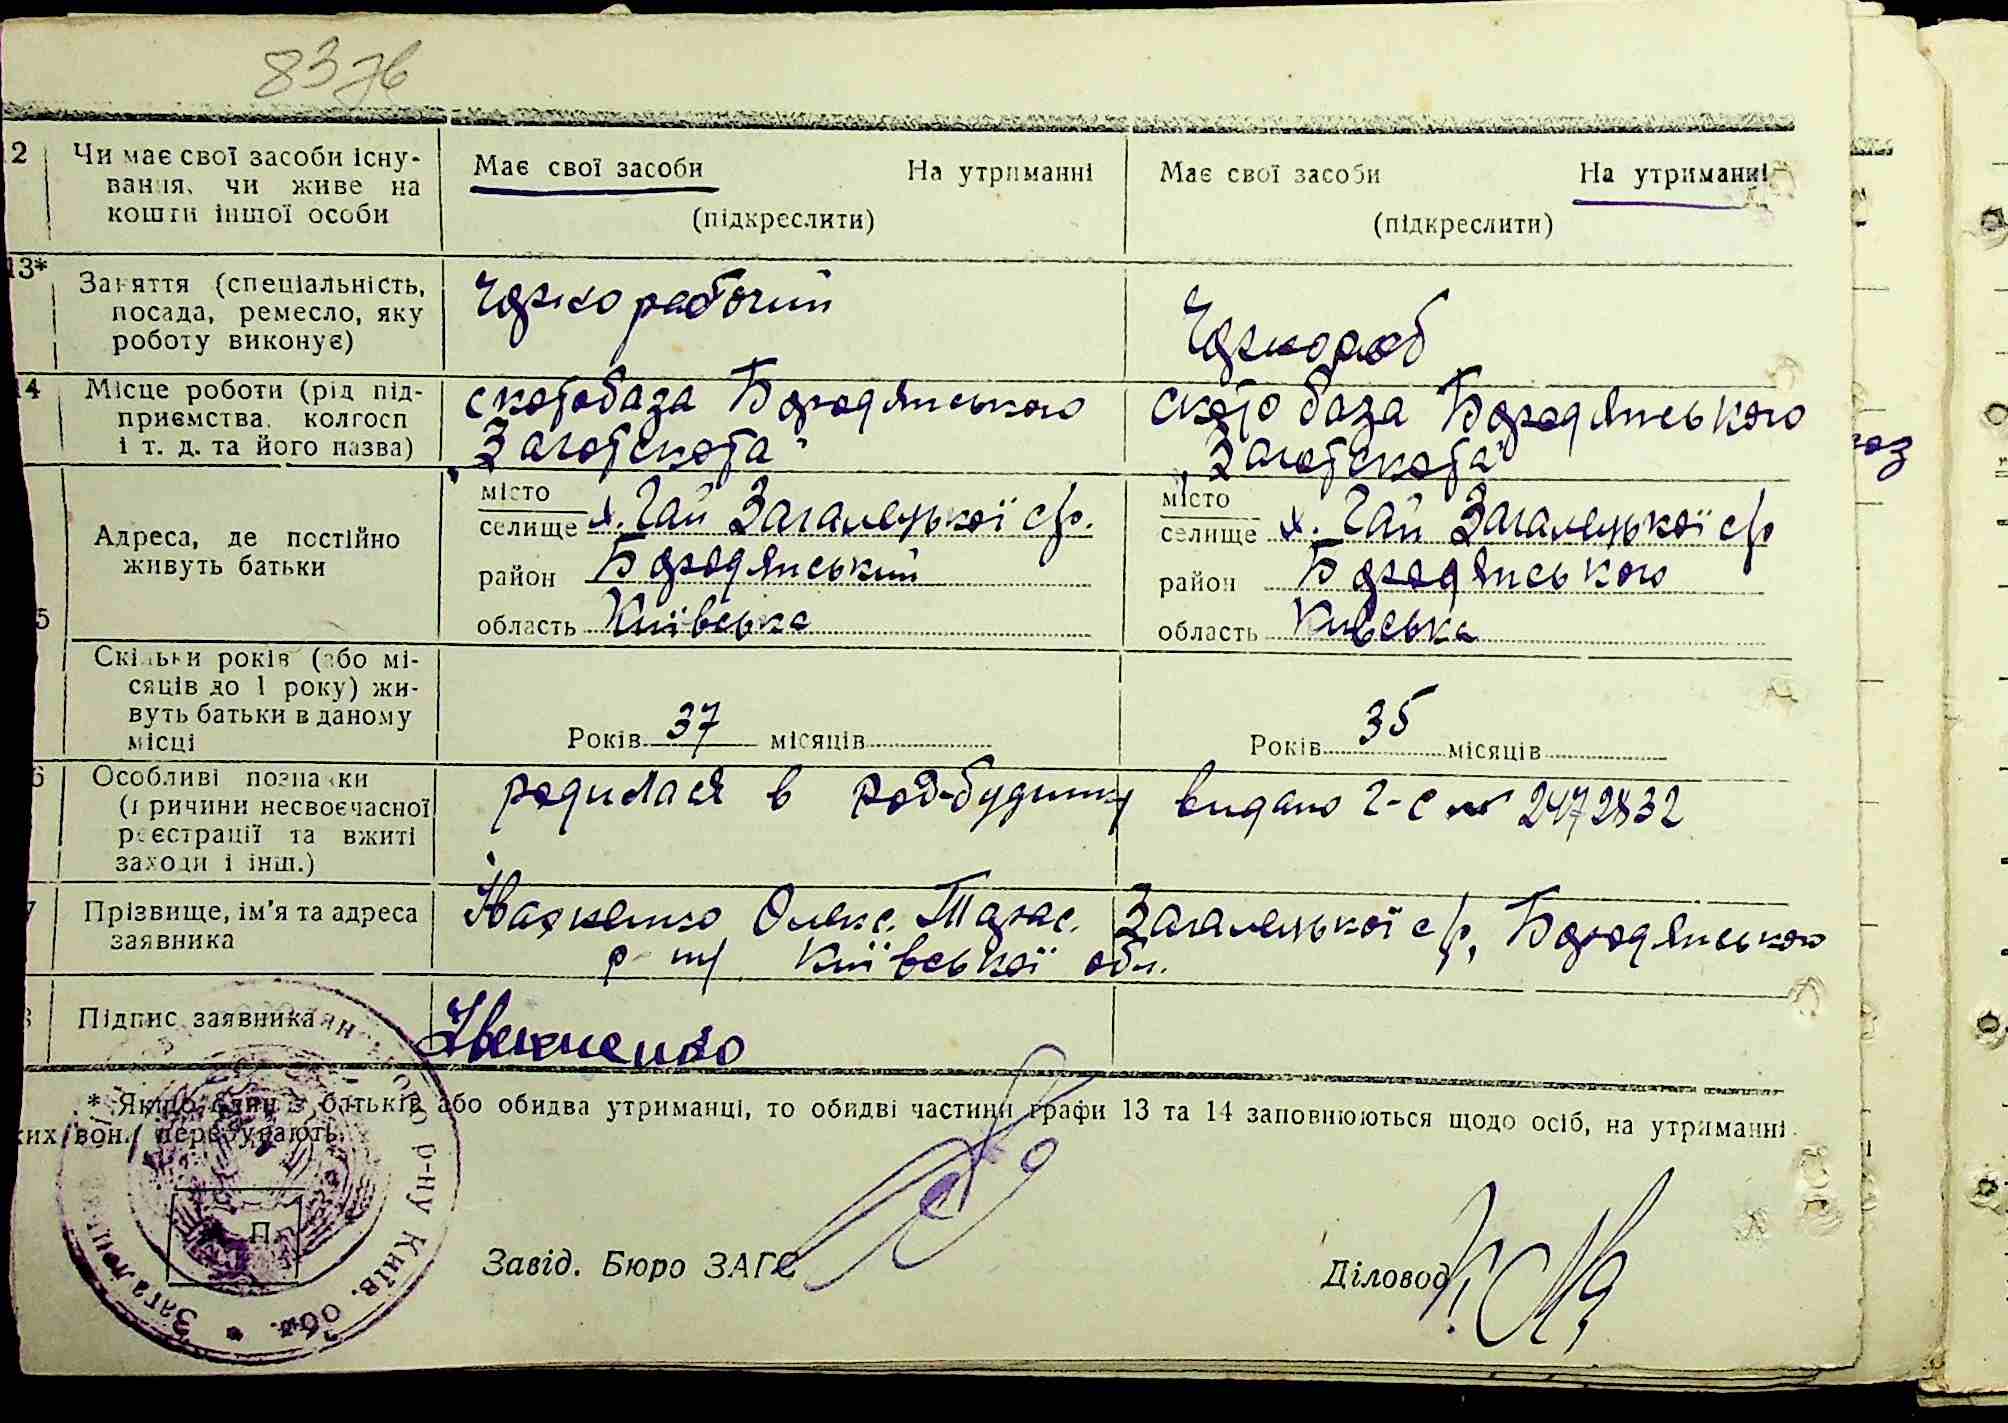 837б
12 Чи має свої засоби існу- Має свої засоби На утриманні Має свої засоби На утриманні
вання, чи живе на
кошти іншої особи (підкреслити) (підкреслити)
13* Заняття (спеціальність, Чорно рабочий
посада, ремесло, яку Чорнороб
роботу виконує)
14 Місце роботи (рід під- скотобаза Бородянського ското база Бородянського
приємства, колгосп „Заготскота" „Заготскота"
і т. д. та його назва)
місто місто
Адреса, де постійно селище х. Гай Загалецької с/р. селище х. Гай Загалецької с/р
живуть батьки район Бородянський район Бородянського
15 область Київська область Київська
Скільки років (або мі-
сяців до 1 року) жи-
вуть батьки в даному Років 37 місяців Років 35 місяців
місці
16 Особливі познаки родилася в род-будинку видано г-с № 2472832
(причини несвоєчасної
реєстрації та вжиті
заходи і інш.)
17 Прізвище, ім'я та адреса Івахненко Олекс. Тарас. Загалецької с/р, Бородянського
заявника р-ну Київської обл.
18 Підпис заявника Івахненко
* Якщо один з батьків або обидва утриманці, то обидві частини графи 13 та 14 заповнюються щодо осіб, на утриманні
яких вони перебувають.
П.
р-ну Київ. Обл. * Загал
Завід. Бюро ЗАГС Діловод